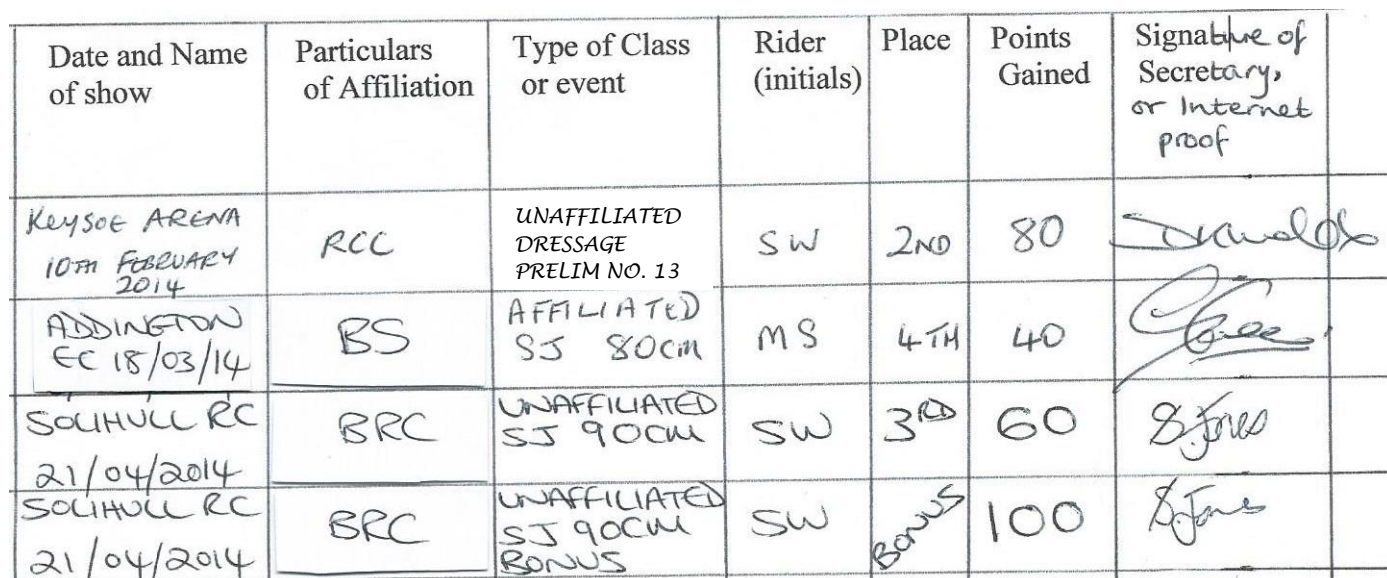 Date and Name of show
Particulars of Affiliation
Type of Class or event
Rider (initials)
Place
Points Gained
Signature of Secretary, or Internet proof
KEYSOE ARENA
10TH FEBRUARY
2014
RCC
UNAFFILIATED
DRESSAGE
PRELIM NO. 13
SW
2ND
80
ADDINGTON
EC 18/03/14
BS
AFFILIATED
SJ 80cm
MS
4TH
40
SOLIHULL RC
21/04/2014
BRC
UNAFFILIATED
SJ 90CM
SW
3RD
60
S. Jones
SOLIHULL RC
21/04/2014
BRC
UNAFFILIATED
SJ 90CM
BONUS
SW
BONUS
100
S. Jones